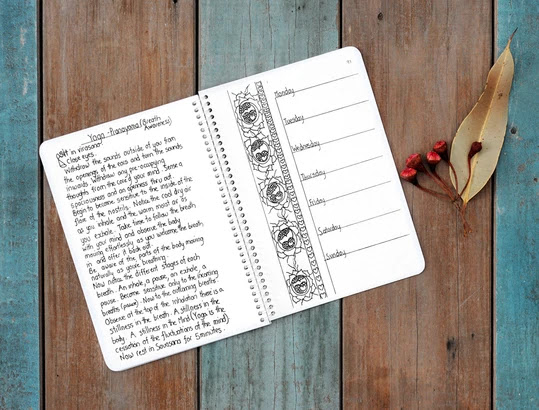 Yoga - Pranayama (Breath
Awareness)
in virasana
Close eyes.
Withdraw the sounds outside of you from
the openings of the ears and turn the sounds
inwards. Withdraw any pre-occupying
thoughts from the core of your mind. Sense a
spaciousness and an openness thru out.
Begin to become sensitive to the inside of the
floor of the nostrils. Notice the cool dry air
as you inhale and the warm moist as
you exhale. Take time to follow the breath
with your mind and observe the body
moving effortlessly as you welcome the breath
in and offer it back out.
Be aware of the parts of the body moving
naturally as your breathing.
Now notice the different stages of each
breath. An inhale, a pause, an exhale, a
pause. Become sensitive only to the incoming
breaths (pause). Now to the exhaling breaths.
Observe at the top of the inhalation there is a
stillness in the breath. A stillness in the
body. A stillness in the Mind (Yoga is the
cessation of the fluctuations of the mind)
Now rest in Savasana for 5 minutes.
Monday
Tuesday
Wednesday
Thursday
Friday
Saturday
Sunday